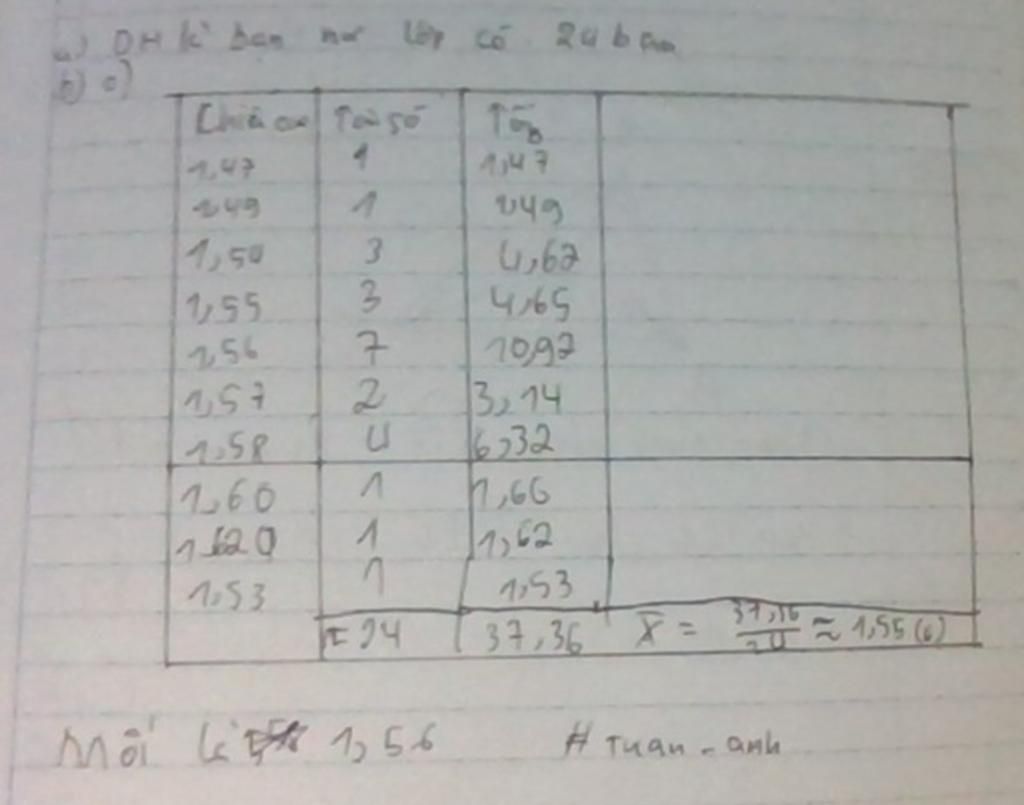 a) DH kì bạn nữ lớp có 24 bạn
b) c)
Chiều cao Tần số Tổng
1,47 1 1,47
1,49 1 1,49
1,50 3 4,62
1,55 3 4,65
1,56 7 10,92
1,57 2 3,14
1,58 4 6,32
1,60 1 1,66
1,620 1 1,62
1,53 1 1,53
I=24 37,36 X̄ = 37,36/24 ≈ 1,55(6)
Mối 1,56 # Tuan-anh